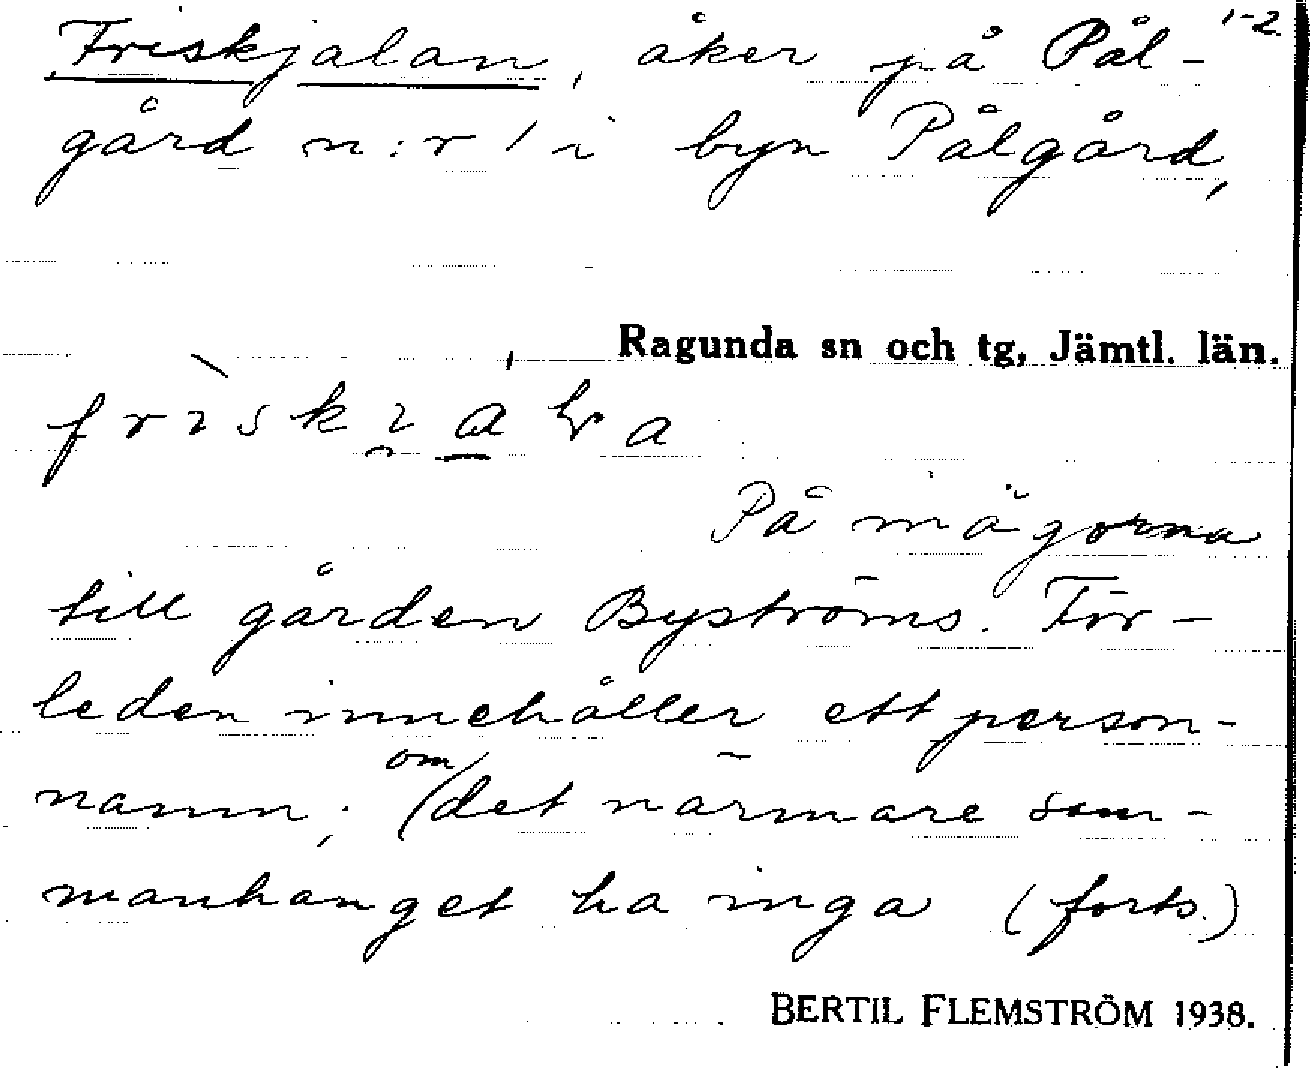 Friskjalan, åker på Pål- 1-2
gård n:r 1 i byn Pålgård,
Ragunda sn och tg, Jämtl. län.
På mägorna
till gården Byströms. För-
leden innehåller ett person-
namn; om det närmare sam-
manhanget ha inga (forts.)
BERTIL FLEMSTRÖM 1938.